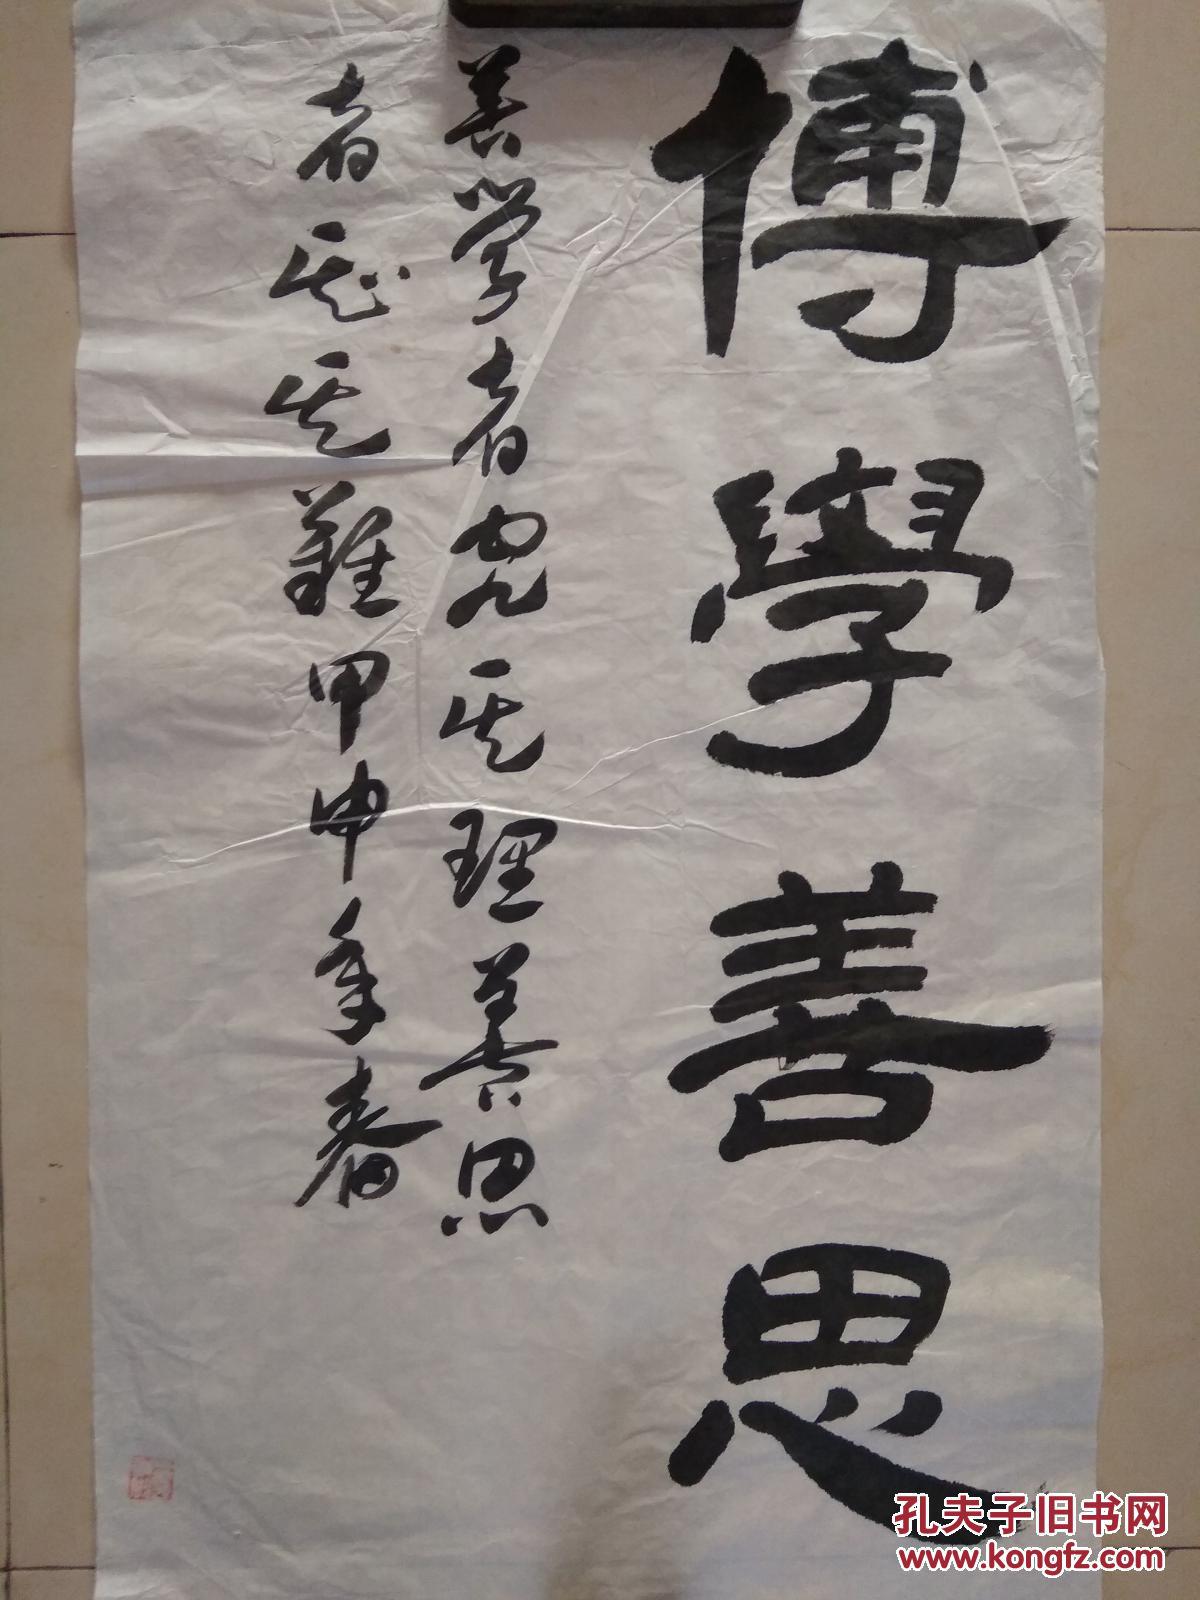 傅學善思
善学者究其理善思
者起其難甲申年春
孔夫子旧书网
www.kongfz.com